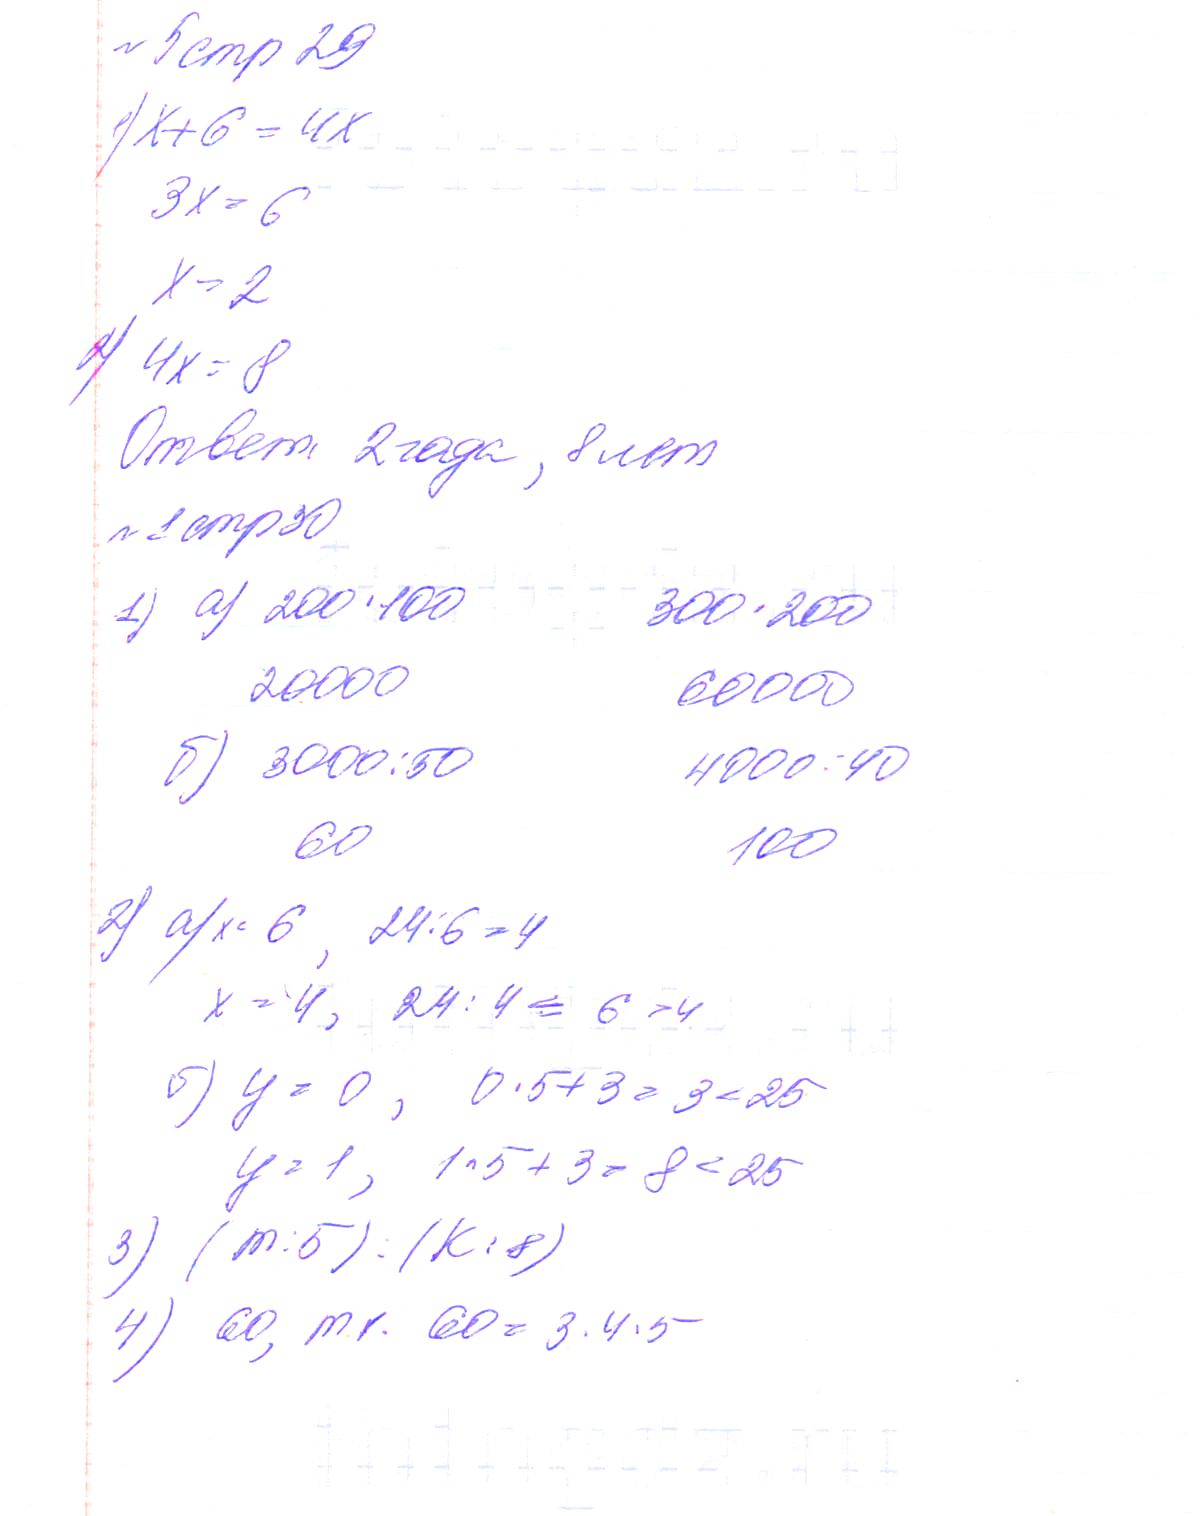 № 5 стр 29
1) x+6=4x
3x=6
x=2
2) 4x=8
Ответ: 2 года, 8 лет
№ 1 стр 30
1) а) 200·100 300·200
20000 60000
б) 3000:50 4000:40
60 100
2) а) x=6, 24:6=4
x=4, 24:4=6>4
б) y=0, 0·5+3=3<25
y=1, 1·5+3=8<25
3) (m:5):(k:8)
4) 60, т.к. 60=3·4·5